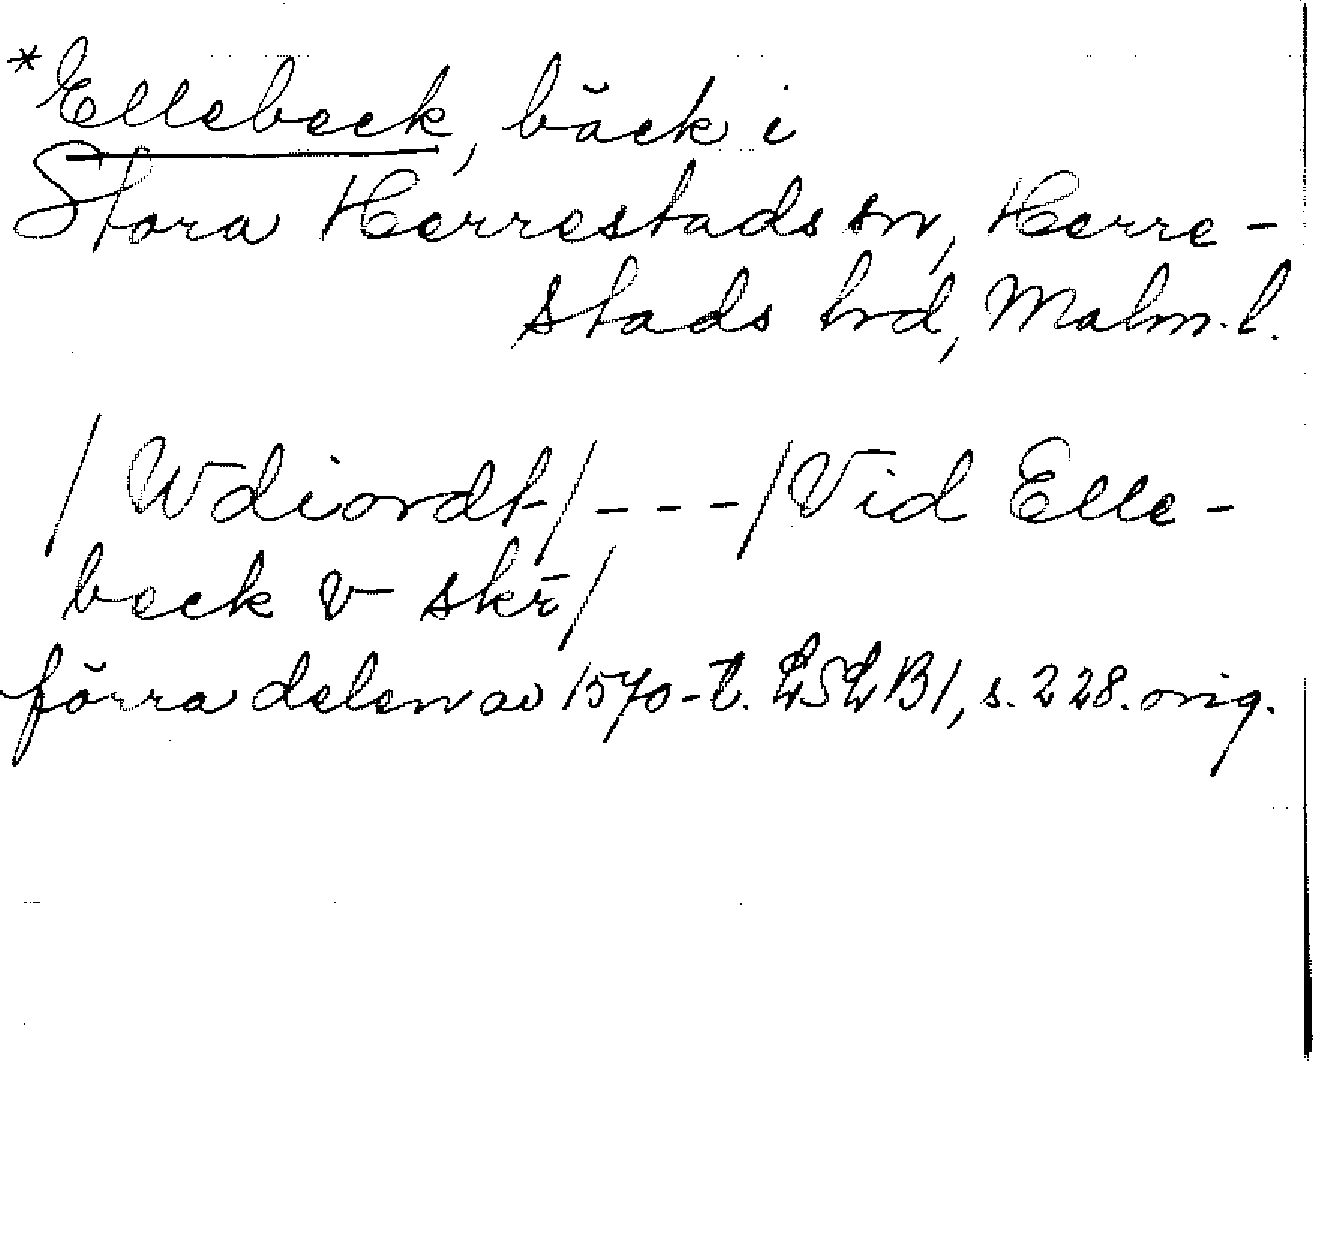 *Ellebeck, bäck i
Stora Herrestads sn, Herre-
stads hd, Malm. l.
/Wdiordt/---/Vid Elle-
beck v skr/
förra delen av 1570-t. LSLB1, s. 228. orig.